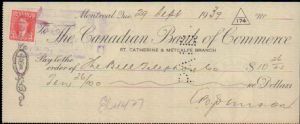 Montreal Que. 29 Sept 1939
174
To The Canadian Bank of Commerce
ST. CATHERINE & METCALFE BRANCH
Pay to the
order of The Bell Telephone Co $10 26
Ten 26/100 Dollars